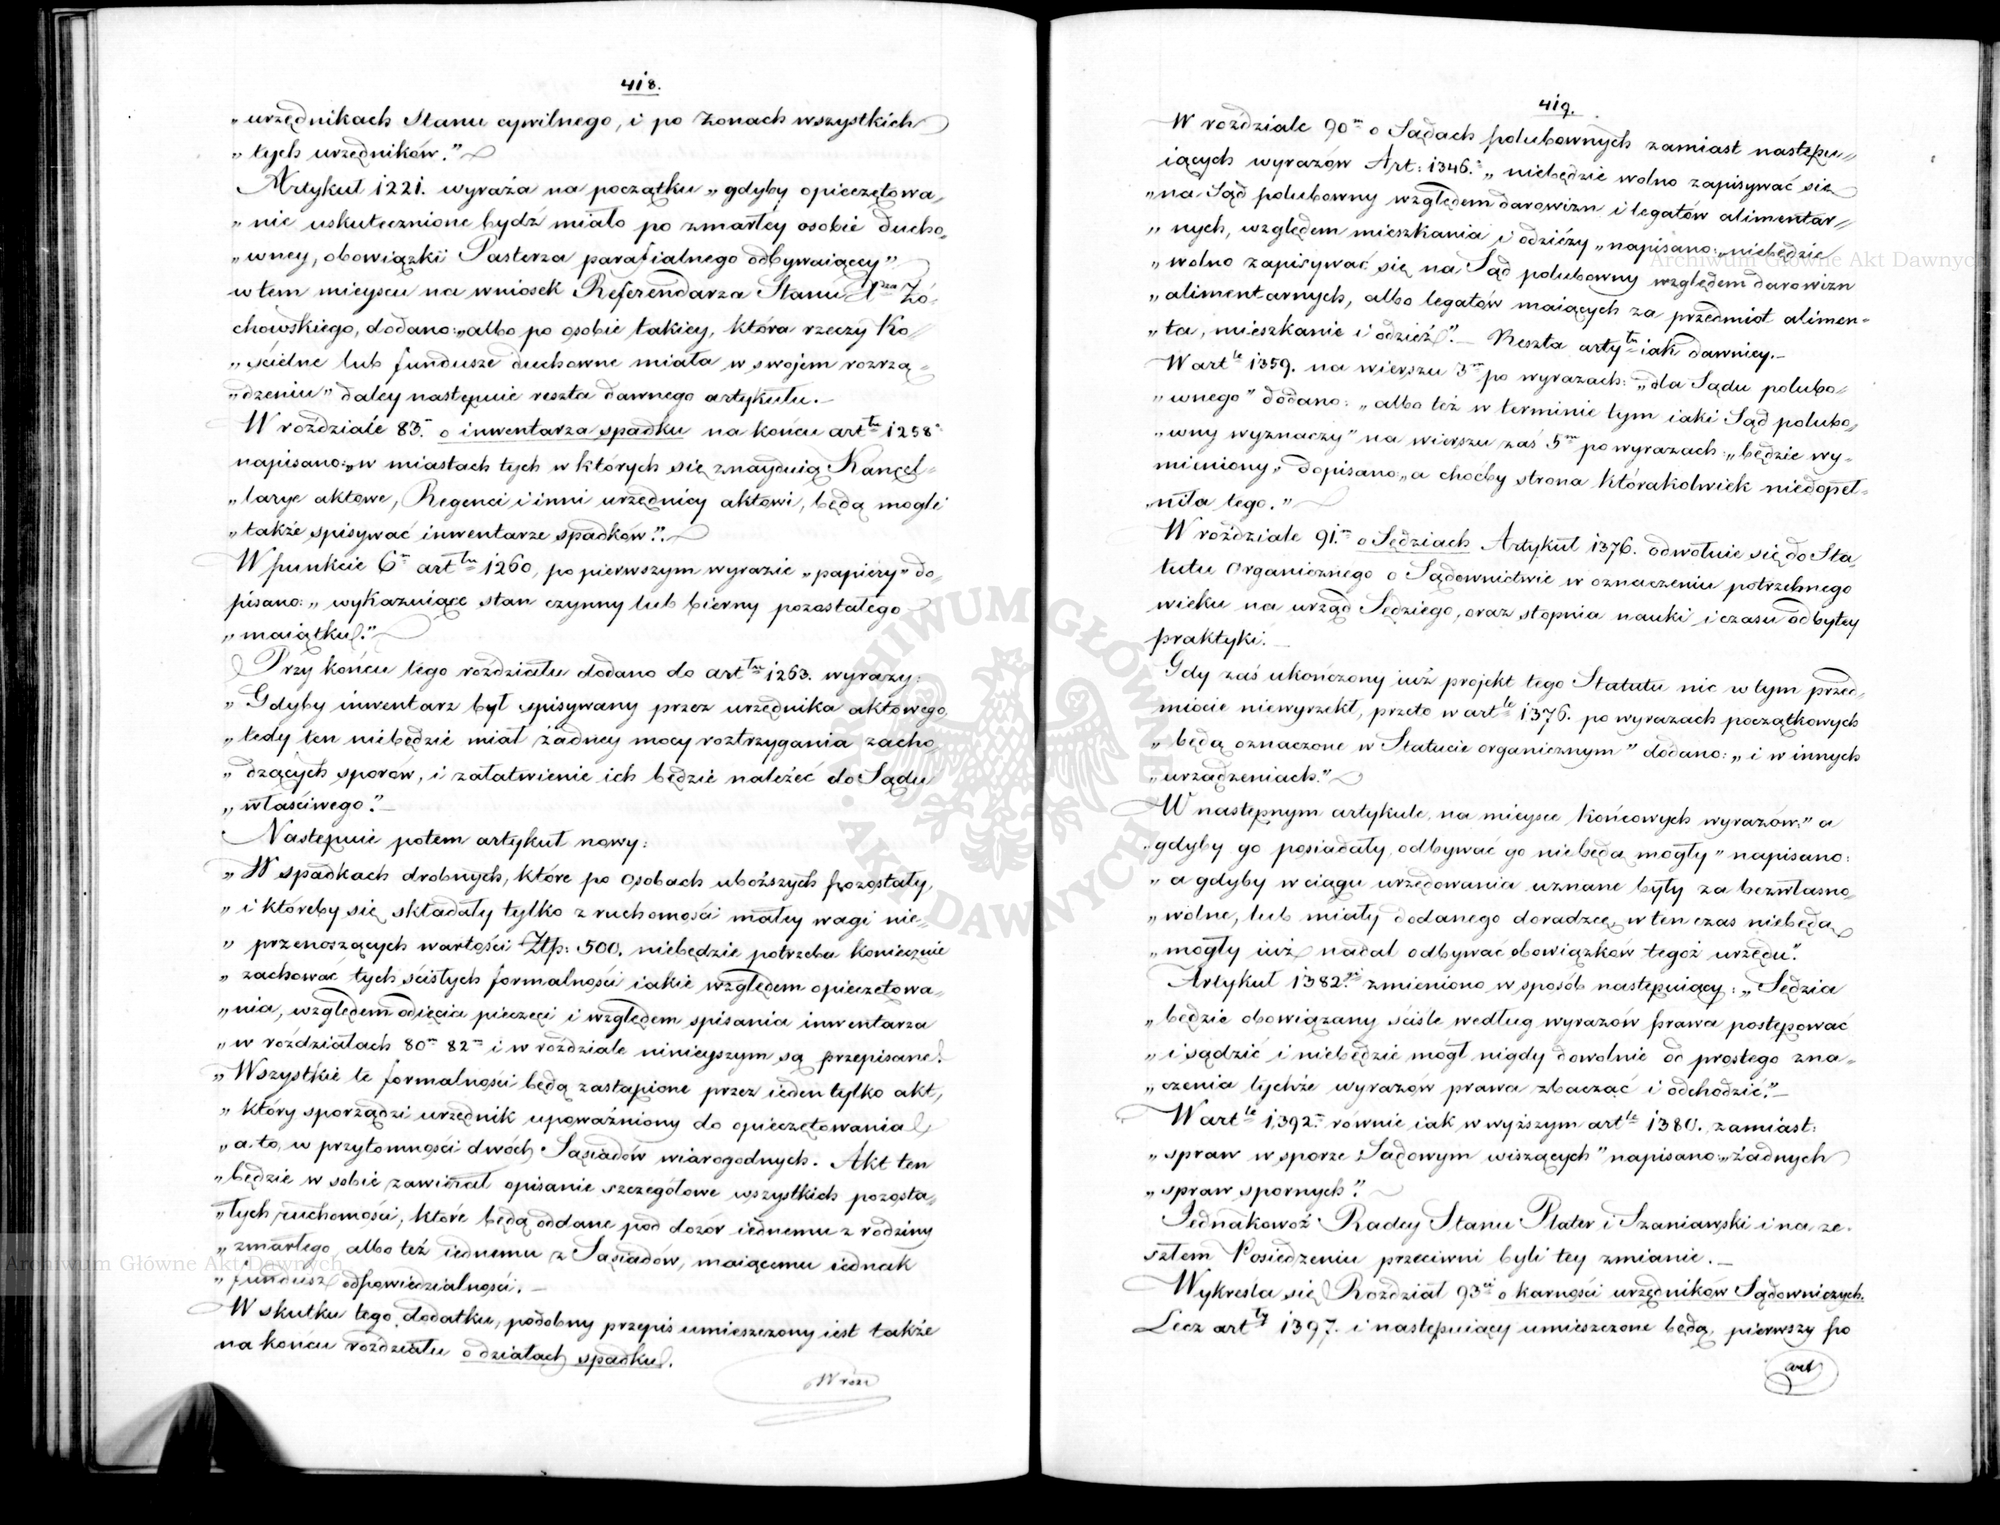 418.
„urzędnikach Stanu cywilnego, i po żonach wszystkich
„tych urzędników.”
Artykuł 1221. wyraża na początku „gdyby opieczętowa„
„nie uskutecznione bydź miało po zmarłey osobie ducho„
„wney, obowiązki Pasterza parafialnego odbywaiącey”
w tem mieyscu na wniosek Referendarza Stanu Xdza Żó„
chowskiego, dodano: „albo po osobie takiey, która rzeczy Ko„
„ścielne lub fundusze duchowne miała w swojem rozrzą„
„dzeniu” daley następuie reszta dawnego artykułu.—
W róździale 83. o inwentarza spadku na końcu artłu 1258
napisano: „w miastach tych w których się znayduią Kancel„
„larye aktowe, Regenci i inni urzędnicy aktowi, będą mogli
„także spisywać inwentarze spadków.”
W punkcie 6m artłu 1260, po pierwszym wyrazie „papiery” do„
pisano: „wykazuiące stan czynny lub bierny pozostałego
„maiątku.”
Przy końcu tego rozdziału dodano do artłu 1263. wyrazy:
„Gdyby inwentarz był spisywany przez urzędnika aktowego,
„tedy ten niebędzie miał żadney mocy roztrzygania zacho„
„dzących sporów, i załatwienie ich będzie należeć do Sądu
„właściwego.”—
Następuie potem artykuł nowy:
„W spadkach drobnych, które po osobach uboższych pozostały,
„i któreby się składały tylko z ruchomości małey wagi nie„
„przenoszących wartości Złp: 500. niebędzie potrzeba koniecznie
„zachować tych ścisłych formalności iakie względem opieczętowa„
„nia, względem odięcia pieczęci i względem spisania inwentarza
„w róździałach 80m 82m i w róździale ninieyszym są przepisane.
„Wszystkie te formalności będą zastąpione przez ieden tylko akt,
„który sporządzi urzędnik upoważniony do opieczętowania
„a to, w przytomności dwóch Sąsiadów wiarogodnych. Akt ten
„będzie w sobie zawierał opisanie szczegółowe wszystkich pozosta„
„łych ruchomości, które będą oddane pod dozór iednemu z rodziny
„zmarłego, albo też iednemu z Sąsiadów, maiącemu iednak
„fundusz odpowiedzialności.—
W skutku tego dodatku, podobny przepis umieszczony iest także
na końcu róździału o działach spadku.
W róźi
419.
W roździale 90m o Sądach polubownych zamiast nastepu„
iących wyrazów Art: 1346. „niebędzie wolno zapisywać się
„na Sąd polubowny względem darowizn i legatów alimentar„
„nych, względem mieszkania i odzieży „napisano: „niebędzie
„wolno zapisywać się na Sąd polubowny względem darowizn
„alimentarnych, albo legatów maiących za przedmiot alimen„
„ta, mieszkanie i odzież”.— Reszta artyłu iak dawniey.—
W artle 1359. na wierszu 3m po wyrazach: „dla Sądu polubo„
„wnego” dodano: „albo też w terminie tym iaki Sąd polubo„
„wny wyznaczy” na wierszu zaś 5m po wyrazach: „będzie wy„
mieniony„ dopisano: „a choćby strona którakolwiek niedopeł„
„niła tego.”
W róździale 91m o Sędziach Artykuł 1376. odwołuie się do Sta„
tutu Organicznego o Sądownictwie w oznaczeniu potrzebnego
wieku na urząd Sędziego, oraz stopnia nauki i czasu odbytey
praktyki.—
Gdy zaś ukończony iuż projekt tego Statutu nic w tym przed„
miocie niewyrzekł, przeto w artle 1376. po wyrazach początkowych
„będą oznaczone w Statucie organicznym” dodano: „i w innych
„urządzeniach.”
W następnym artykule, na mieysce końcowych wyrazów: ” a
„gdyby go posiadały, odbywać go niebędą mogły” napisano:
„a gdyby w ciągu urzędowania uznane były za bezwłasno„
„wolne, lub miały dodanego doradzcę, w ten czas niebędą
„mogły iuż nadal odbywać obowiązków tegoż urzędu.”
Artykuł 1382gi zmieniono w sposób następuiący: „Sędzia
„będzie obowiązany ściśle według wyrazów prawa postępować
„i sądzić i niebędzie mógł nigdy dowolnie od prostego zna„
„czenia tychże wyrazów prawa zbaczać i odchodzić.”—
W artle 1392. równie iak w wyższym artle 1380. zamiast:
„spraw w sporze Sądowym wiszących” napisano: „żadnych
„spraw spornych.”
Jednakowoż Radcy Stanu Plater i Szaniawski i na ze„
szłem Posiedzeniu przeciwni byli tey zmianie.—
Wykreśla się Roździał 93ci o karności urzędników Sądowniczych.
Lecz artły 1397. i następuiący umieszczone będą, pierwszy po
art
Archiwum Główne Akt Dawnych
Archiwum Główne Akt Dawnych
ARCHIWUM GŁÓWNE AKT DAWNYCH